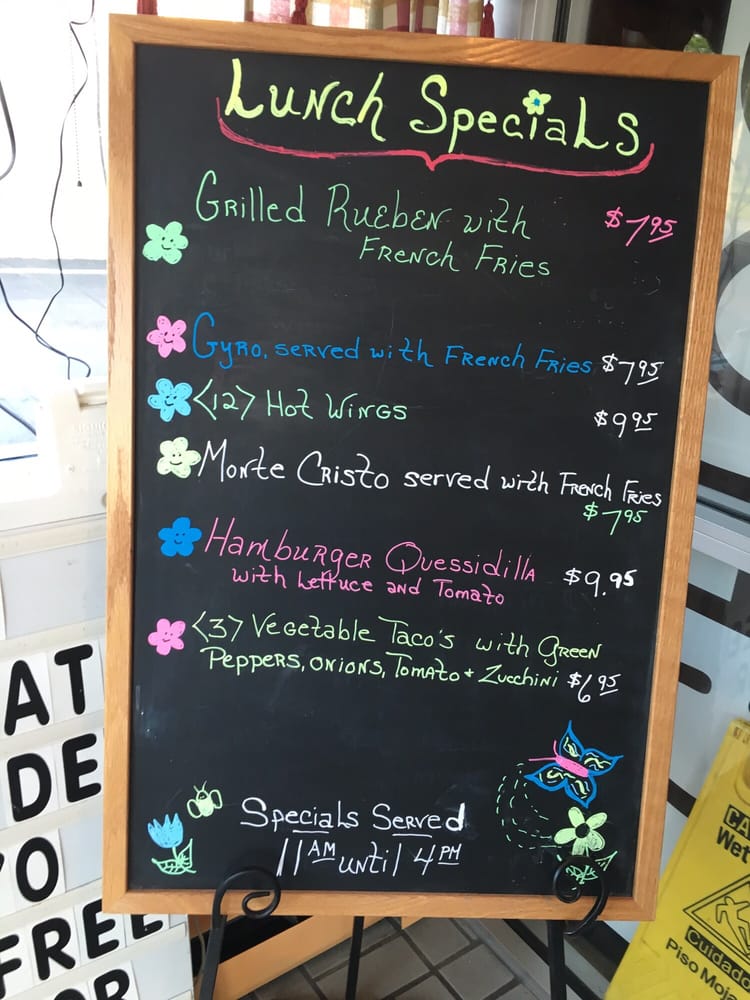 Lunch Specials
Grilled Rueben with $7.95
French Fries
Gyro, served with French Fries $7.95
<12> Hot Wings $9.95
Monte Cristo served with French Fries
$7.95
Hamburger Quessidilla $9.95
with Lettuce and Tomato
<3> Vegetable Taco's with Green
Peppers, onions, Tomato + Zucchini $6.95
Specials Served
11AM until 4PM
AT
DE
O
FREE
OR
Wet
Cuidado
Piso Moja